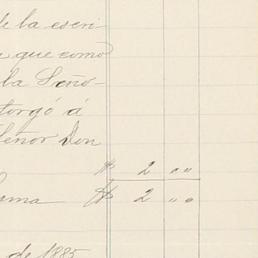 de la escri-
que como
la Seño-
torgó á
Señor Don
$ 2 ""
Suma $ 2 ""
de 1885